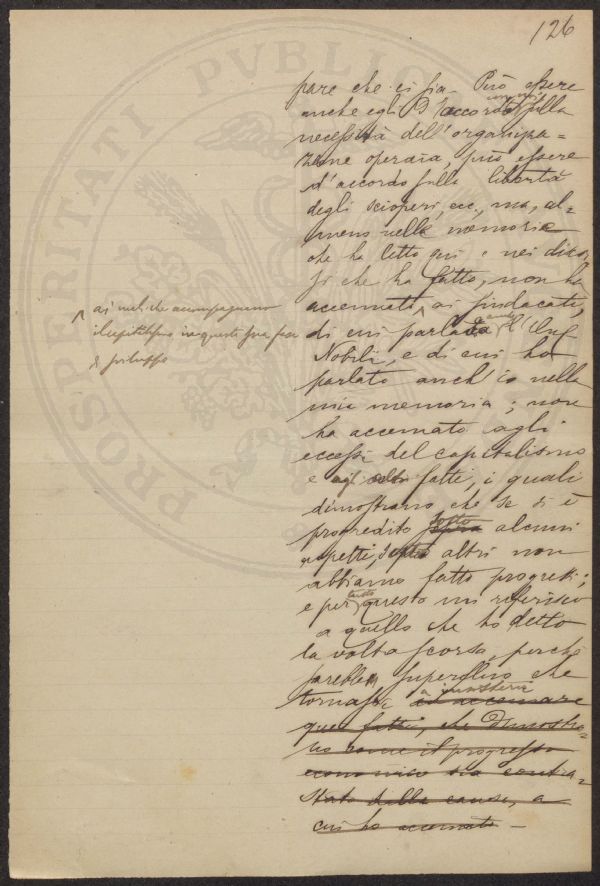 126
pare che ci sia. Può essere
anche egli d'accordo con noi sulla
necessità dell'organizza=
zione operaia, può essere
d'accordo sulla libertà
degli scioperi, ecc., ma, al=
meno nella memoria
che ha letto qui e nei discor
si che ha fatto, non ha
accennato ai sindacati,
ai mali che accompagnano
il capitalismo in questa sua fase
di sviluppo
di cui parlava anche l'On.
Nobili, e di cui ho
parlato anch'io nella
mia memoria; non
ha accennato agli
eccessi del capitalismo
e agli altri fatti, i quali
dimostrano che se si è
progredito sotto alcuni
aspetti, sotto altri non
abbiamo fatto progressi;
e per tutto questo mi riferisco
a quello che ho detto
la volta scorsa, perché
sarebbe superfluo che
tornassi a insistere
ad accennare
quei fatti, che dimostra=
no come il progresso
economico sia contra=
stato dalle cause, a
cui ho accennato.
PROSPERITATI PVBLICAE